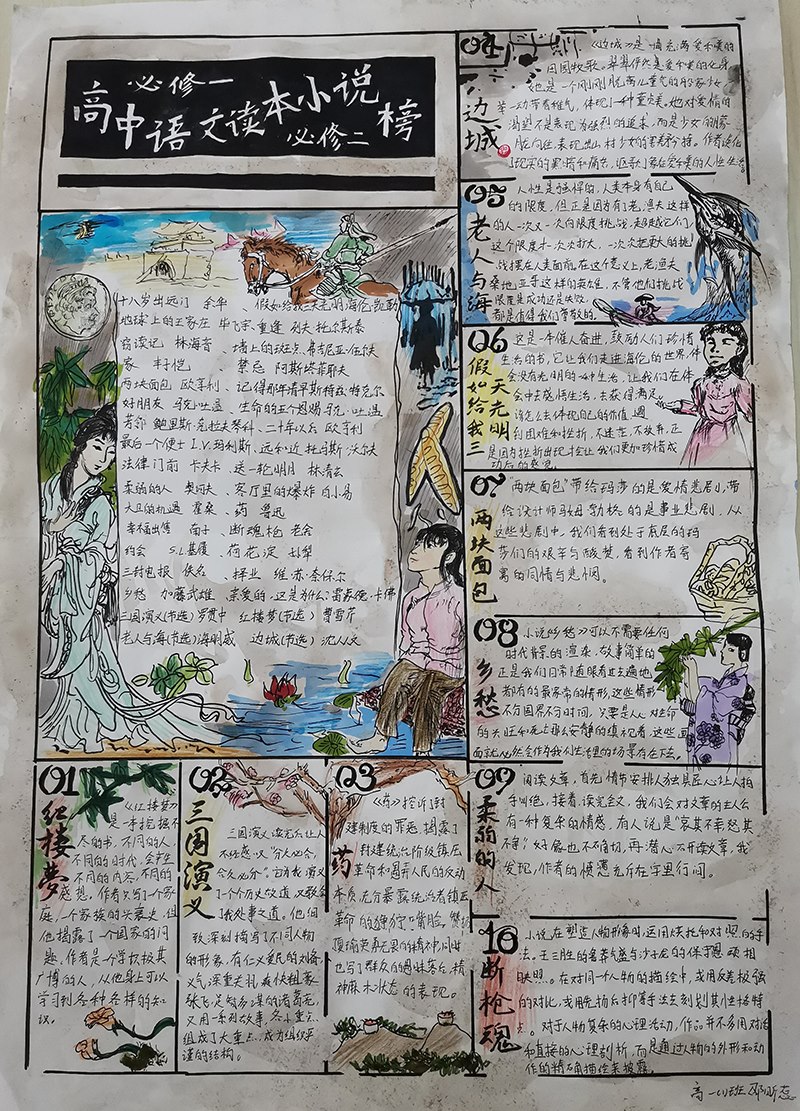 必修一
高中语文读本小说榜
必修二
十八岁出远门 余华、假如给我三天光明 海伦凯勒
地球上的王家庄 毕飞宇、重逢 列夫托尔斯泰
窃读记 林海音、墙上的斑点 弗吉尼亚·伍尔夫
家
两块面包 欧亨利、记得那年清早
好朋友 马克吐温、生命的五个恩赐 马克·吐温
考邻 二十年以后 欧亨利
最后一个便士 I.V.玛利斯、远和近 托马斯沃尔夫
法律门前 卡夫卡、送一轮明月 林清玄
柔弱的人 契诃夫、客厅里的爆炸 白小易
大卫的机遇 霍桑、药 鲁迅
幸福出售 断魂枪 老舍
约会 荷花淀 孙犁
三封电报 佚名、择业 维·苏·奈保尔
乡愁 加藤武雄、亲爱的,这是为什么? 雷蒙德·卡佛
三国演义(节选) 罗贯中 红楼梦(节选) 曹雪芹
老人与海(节选) 海明威 边城(节选) 沈从文
01
红楼梦
《红楼梦》
是一本挖掘不
尽的书,不同的人,
不同的时代,会产生
不同的内容,不同的
感想,作者只写了一个家
庭,一个家族的兴衰史,但
他揭露了一个国家的问
题,作者是一个学识极其
广博的人,从他身上可以
学习到各种各样的知
识。
02
三国演义
三国演义读完后让人
不经感叹"分久必合,
合久必分",
致深刻描写了不同人物
的形象,有仁义爱民的刘备,
义气深重关羽,爽快粗暴
张飞,足智多谋的诸葛亮,
又用一系列故事,各小重点
组成了大重点,成为组织严
谨的结构。
03
药
《药》控诉封
建制度的罪恶,揭露了
封建统治阶级镇压
革命和愚弄人民的反动
本质,充分暴露统治者镇压
革命的狰狞嘴脸。赞
也写了群众的愚昧落后,精
神麻木状态的表现。
04
边城
《边城》是一篇充满爱和美的
田园牧歌。翠翠俨然是爱和美的化身,
她是一个刚刚脱离儿童气的船家少女,
举一动带有稚气,体现了一种童贞美。她对爱情的
渴望不是表现为强烈的追求,而是少女的朦
胧向往,表现出山村少女的羞柔矜持。作者淡化
了现实的黑暗和痛苦,讴歌了象征爱和美的人性生活
05
老人与海
人性是强悍的,人类本身有自己
的限度,但正是因为有了老渔夫这样
的人一次又一次向限度挑战,超越它们,
这个限度才一次次扩大,一次次把更大的挑
战摆在人类面前,在这个意义上,老渔夫
桑地亚哥这样的英雄,不管他们挑战
限度是成功还是失败,
都是值得我们尊敬的
06
假如给我三天光明
这是一本催人奋进,鼓动人们珍惜
生活的书,它让我们走进海伦的世界,体
会没有光明的一种生活,让我们在体
会中去感悟生活,去获得满足。
该怎么去体现自己的价值,遇
到困难和挫折,不迷茫,不放弃,正
是因为挫折出现才会让我们更加珍惜成
功后的感觉。
07
两块面包
"两块面包"带给玛莎的是爱情悲剧,带
给设计师马姆勃格的是事业悲剧,从
这些悲剧中,我们看到处于底层的玛
莎们的艰辛与酸楚,看到作者寄
寓的同情与悲悯。
08
乡愁
小说《乡愁》可以不需要任何
时代背景的渲染,故事简单的
正是我们日常随眼看去遍地
都有的最家常的情形,这些情形
不分国界不分时间,只要是人,对生命
09
柔弱的人
阅读文章,首先情节安排人独具匠心,让人拍
手叫绝,接着读完全文,我们会对文章的主人公
有一种复杂的情感,有人说是"哀其不幸,怒其
不争"好像也不确切,再潜心下来读文章,我
发现,作者的愤懑充斥在字里行间。
10
断枪魂
小说在塑造人物形象时,运用烘托和对照的手
法。王三胜的名慕气盛与沙子龙的保守隐顽相
映照。在对同一个人物的描绘中,或用反差极强
的对比,或用先扬后抑等手法去刻划其个性特
点。对于人物复杂的心理活动,作品并不多用对话
和直接的心理剖析,而是通过人物的外形和动
作的精确描绘来披露。